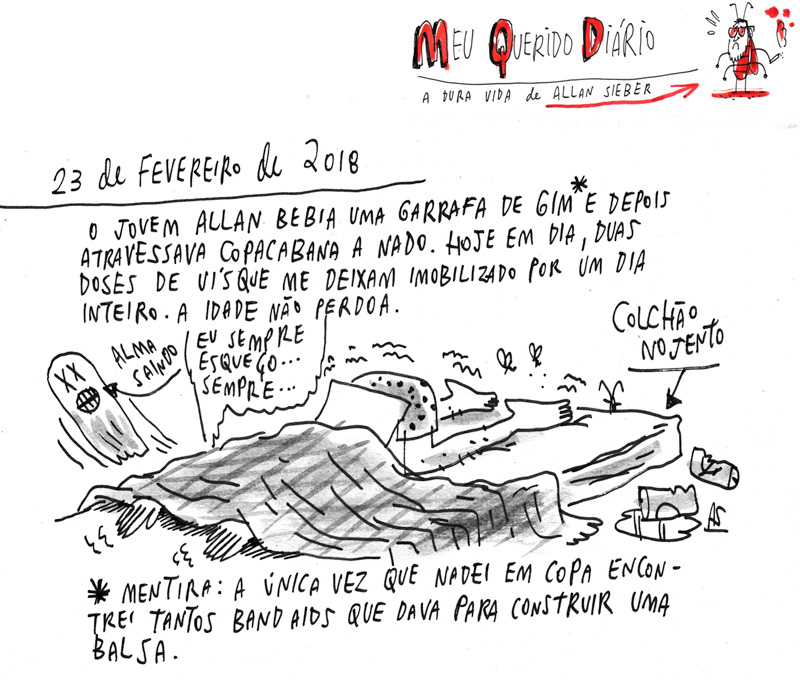 MEU QUERIDO DIÁRIO
A DURA VIDA de ALLAN SIEBER
23 de FEVEREIRO de 2018
O JOVEM ALLAN BEBIA UMA GARRAFA DE GIM* E DEPOIS
ATRAVESSAVA COPACABANA A NADO. HOJE EM DIA, DUAS
DOSES DE UÍSQUE ME DEIXAM IMOBILIZADO POR UM DIA
INTEIRO. A IDADE NÃO PERDOA.
ALMA
SAINDO
EU SEMPRE
ESQUEÇO...
SEMPRE...
COLCHÃO
NOJENTO
XX
AS
* MENTIRA: A ÚNICA VEZ QUE NADEI EM COPA ENCON-
TREI TANTOS BAND AIDS QUE DAVA PARA CONSTRUIR UMA
BALSA.